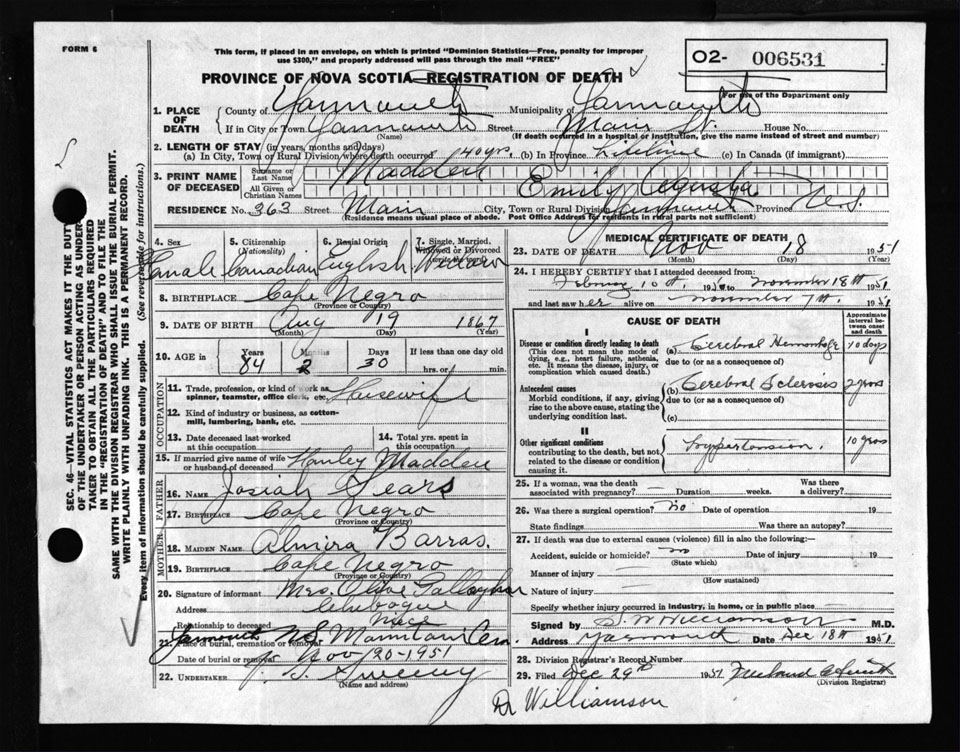 FORM 6
This form, if placed in an envelope, on which is printed "Dominion Statistics—Free, penalty for improper
use $300," and properly addressed will pass through the mail "FREE"
02- 006531
For use of the Department only
PROVINCE OF NOVA SCOTIA—REGISTRATION OF DEATH
1. PLACE OF DEATH
County of Yarmouth Municipality of Yarmouth
If in City or Town Yarmouth Street Main St. House No.
(Name) (If death occurred in a hospital or institution, give the name instead of street and number)
2. LENGTH OF STAY (in years, months and days)
(a) In City, Town or Rural Division where death occurred 40 yrs. (b) In Province Lifetime (c) In Canada (if immigrant)
3. PRINT NAME OF DECEASED
Surname or Last Name Madden
All Given or Christian Names Emily Agusta
RESIDENCE No. 363 Street Main City, Town or Rural Division Yarmouth Province N.S.
(Residence means usual place of abode. Post Office Address for residents in rural parts not sufficient)
4. Sex 5. Citizenship (Nationality) 6. Racial Origin 7. Single, Married, Widowed or Divorced
Female Canadian English Widow
8. BIRTHPLACE Cape Negro
(Province or Country)
9. DATE OF BIRTH Aug 19 1867
(Month) (Day) (Year)
10. AGE in Years Months Days If less than one day old
84 2 30 hrs. or min.
OCCUPATION
11. Trade, profession, or kind of work as spinner, teamster, office clerk, etc. Housewife
12. Kind of industry or business, as cotton-mill, lumbering, bank, etc.
13. Date deceased last worked at this occupation
14. Total yrs. spent in this occupation
15. If married give name of wife or husband of deceased Madden
FATHER
16. NAME Josiah
17. BIRTHPLACE Cape Negro
(Province or Country)
MOTHER
18. MAIDEN NAME Almira Barras.
19. BIRTHPLACE Cape Negro
(Province or Country)
20. Signature of informant Mrs. Olive Gallagher
Address Chebogue
Relationship to deceased Niece
21. Place of burial, cremation or removal Yarmouth N.S. Mountain Cem.
Date of burial or removal Nov 20-1951
22. UNDERTAKER Sweeny
(Name and address)
MEDICAL CERTIFICATE OF DEATH
23. DATE OF DEATH Nov 18 1951
(Month) (Day) (Year)
24. I HEREBY CERTIFY that I attended deceased from:
February 10th. 1951 to November 18th 1951
and last saw her alive on November 7th. 1951
CAUSE OF DEATH
Approximate interval between onset and death
I
Disease or condition directly leading to death
(This does not mean the mode of dying, e.g., heart failure, asthenia, etc. It means the disease, injury, or complication which caused death.)
(a) Cerebral Hemorrhage 10 days
due to (or as a consequence of)
Antecedent causes
Morbid conditions, if any, giving rise to the above cause, stating the underlying condition last.
(b) Cerebral Sclerosis 2 yrs
due to (or as a consequence of)
(c)
II
Other significant conditions
contributing to the death, but not related to the disease or condition causing it.
Hypertension. 10 yrs
25. If a woman, was the death associated with pregnancy? Duration weeks. Was there a delivery?
26. Was there a surgical operation? No Date of operation 19
State findings Was there an autopsy?
27. If death was due to external causes (violence) fill in also the following:—
Accident, suicide or homicide? no Date of injury 19
(State which)
Manner of injury
(How sustained)
Nature of injury
Specify whether injury occurred in industry, in home, or in public place
Signed by S. W. Williamson M.D.
Address Yarmouth Date Dec 18th 1951
28. Division Registrar's Record Number
29. Filed Dec 29th 1951
(Division Registrar)
Dr Williamson
SEC. 46—VITAL STATISTICS ACT MAKES IT THE DUTY
OF THE UNDERTAKER OR PERSON ACTING AS UNDERTAKER TO OBTAIN ALL THE PARTICULARS REQUIRED
IN THE "REGISTRATION OF DEATH" AND TO FILE THE
SAME WITH THE DIVISION REGISTRAR WHO SHALL ISSUE THE BURIAL PERMIT.
WRITE PLAINLY WITH UNFADING INK. THIS IS A PERMANENT RECORD.
Every item of information should be carefully supplied. (See reverse side for instructions.)